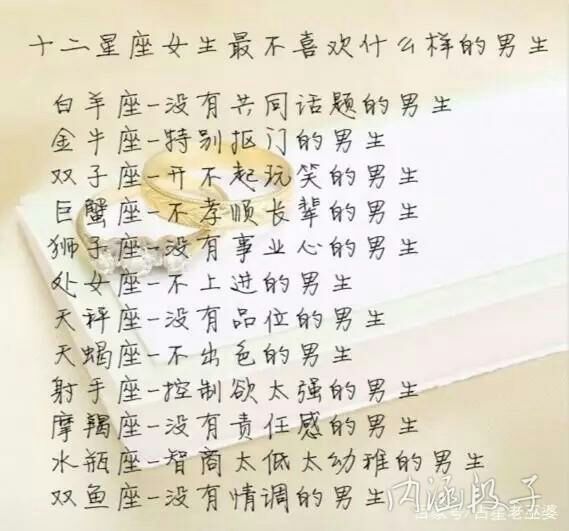 十二星座女生最不喜欢什么样的男生
白羊座-没有共同话题的男生
金牛座-特别抠门的男生
双子座-开不起玩笑的男生
巨蟹座-不孝顺长辈的男生
狮子座-没有事业心的男生
处女座-不上进的男生
天秤座-没有品位的男生
天蝎座-不出色的男生
射手座-控制欲太强的男生
摩羯座-没有责任感的男生
水瓶座-智商太低太幼稚的男生
双鱼座-没有情调的男生
内涵段子
百家号/占星老巫婆